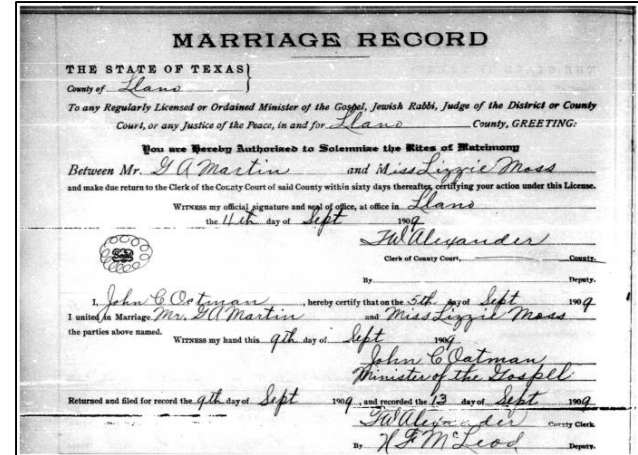 MARRIAGE RECORD
THE STATE OF TEXAS}
County of Llano
To any Regularly Licensed or Ordained Minister of the Gospel, Jewish Rabbi, Judge of the District or County
Court, or any Justice of the Peace, in and for Llano County, GREETING:
You are Hereby Authorized to Solemnize the Rites of Matrimony
Between Mr. G A Martin and Miss Lizzie Moss
and make due return to the Clerk of the County Court of said County within sixty days thereafter, certifying your action under this License.
WITNESS my official signature and seal of office, at office in Llano
the day of Sept 1909
F W Alexander
Clerk of County Court, County.
By Deputy.
I, John C Oatman, hereby certify that on the 5th day of Sept 1909
I united in Marriage Mr. G A Martin and Miss Lizzie Moss
the parties above named.
WITNESS my hand this 9th day of Sept 1909
John C Oatman
Minister of the Gospel
Returned and filed for record the 9th day of Sept 1909, and recorded the 13 day of Sept 1909
F W Alexander County Clerk.
By H F McLeod Deputy.